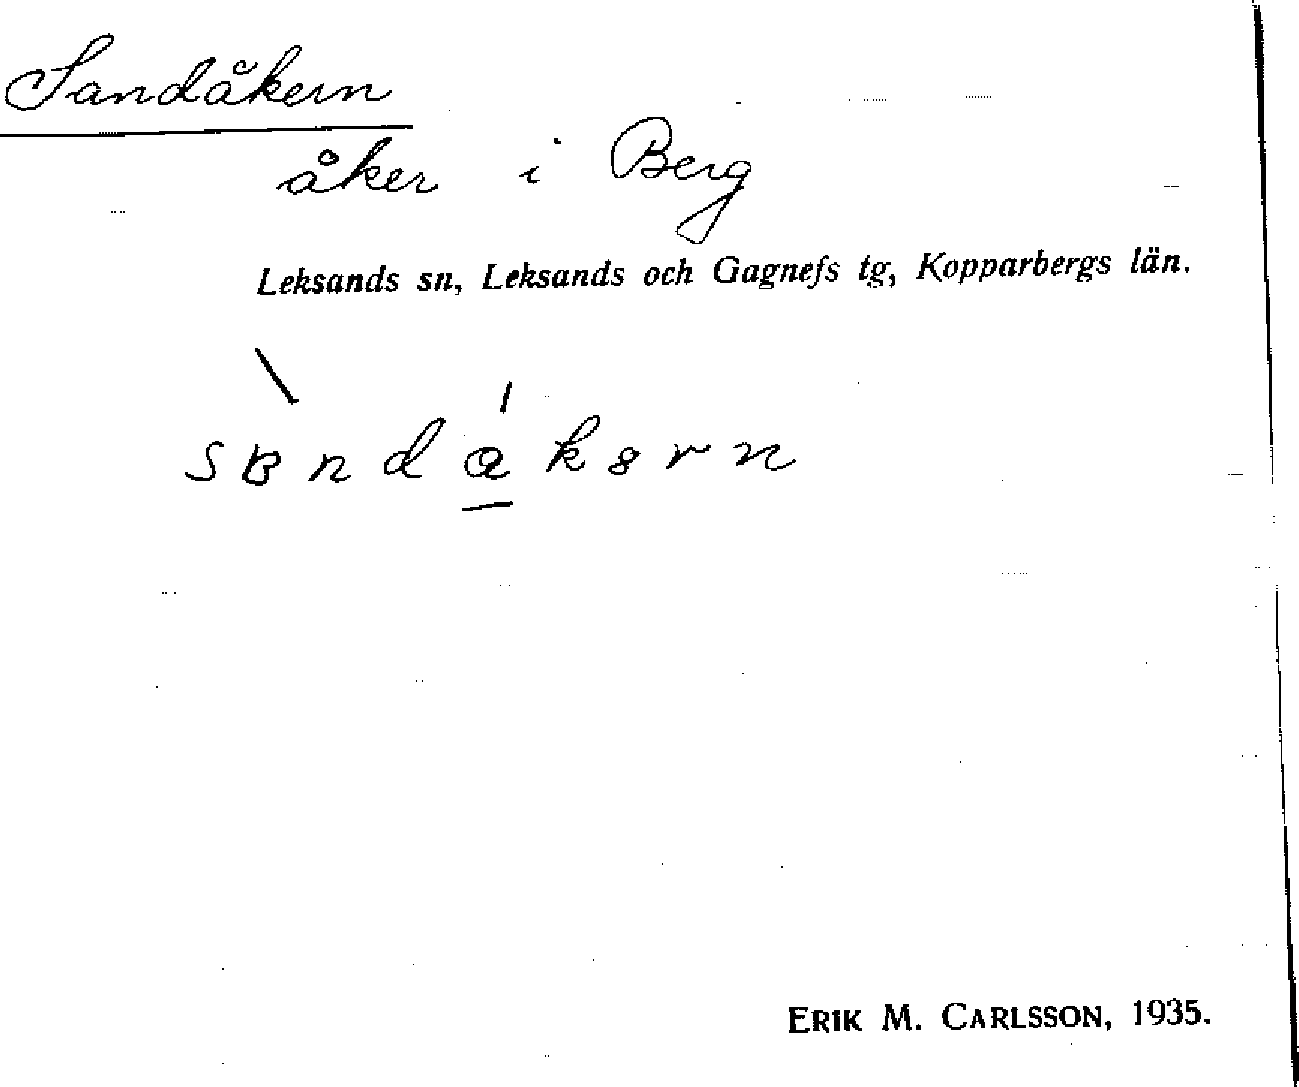 Sandåkern
åker i Berg
Leksands sn, Leksands och Gagnefs tg, Kopparbergs län.
ERIK M. CARLSSON, 1935.